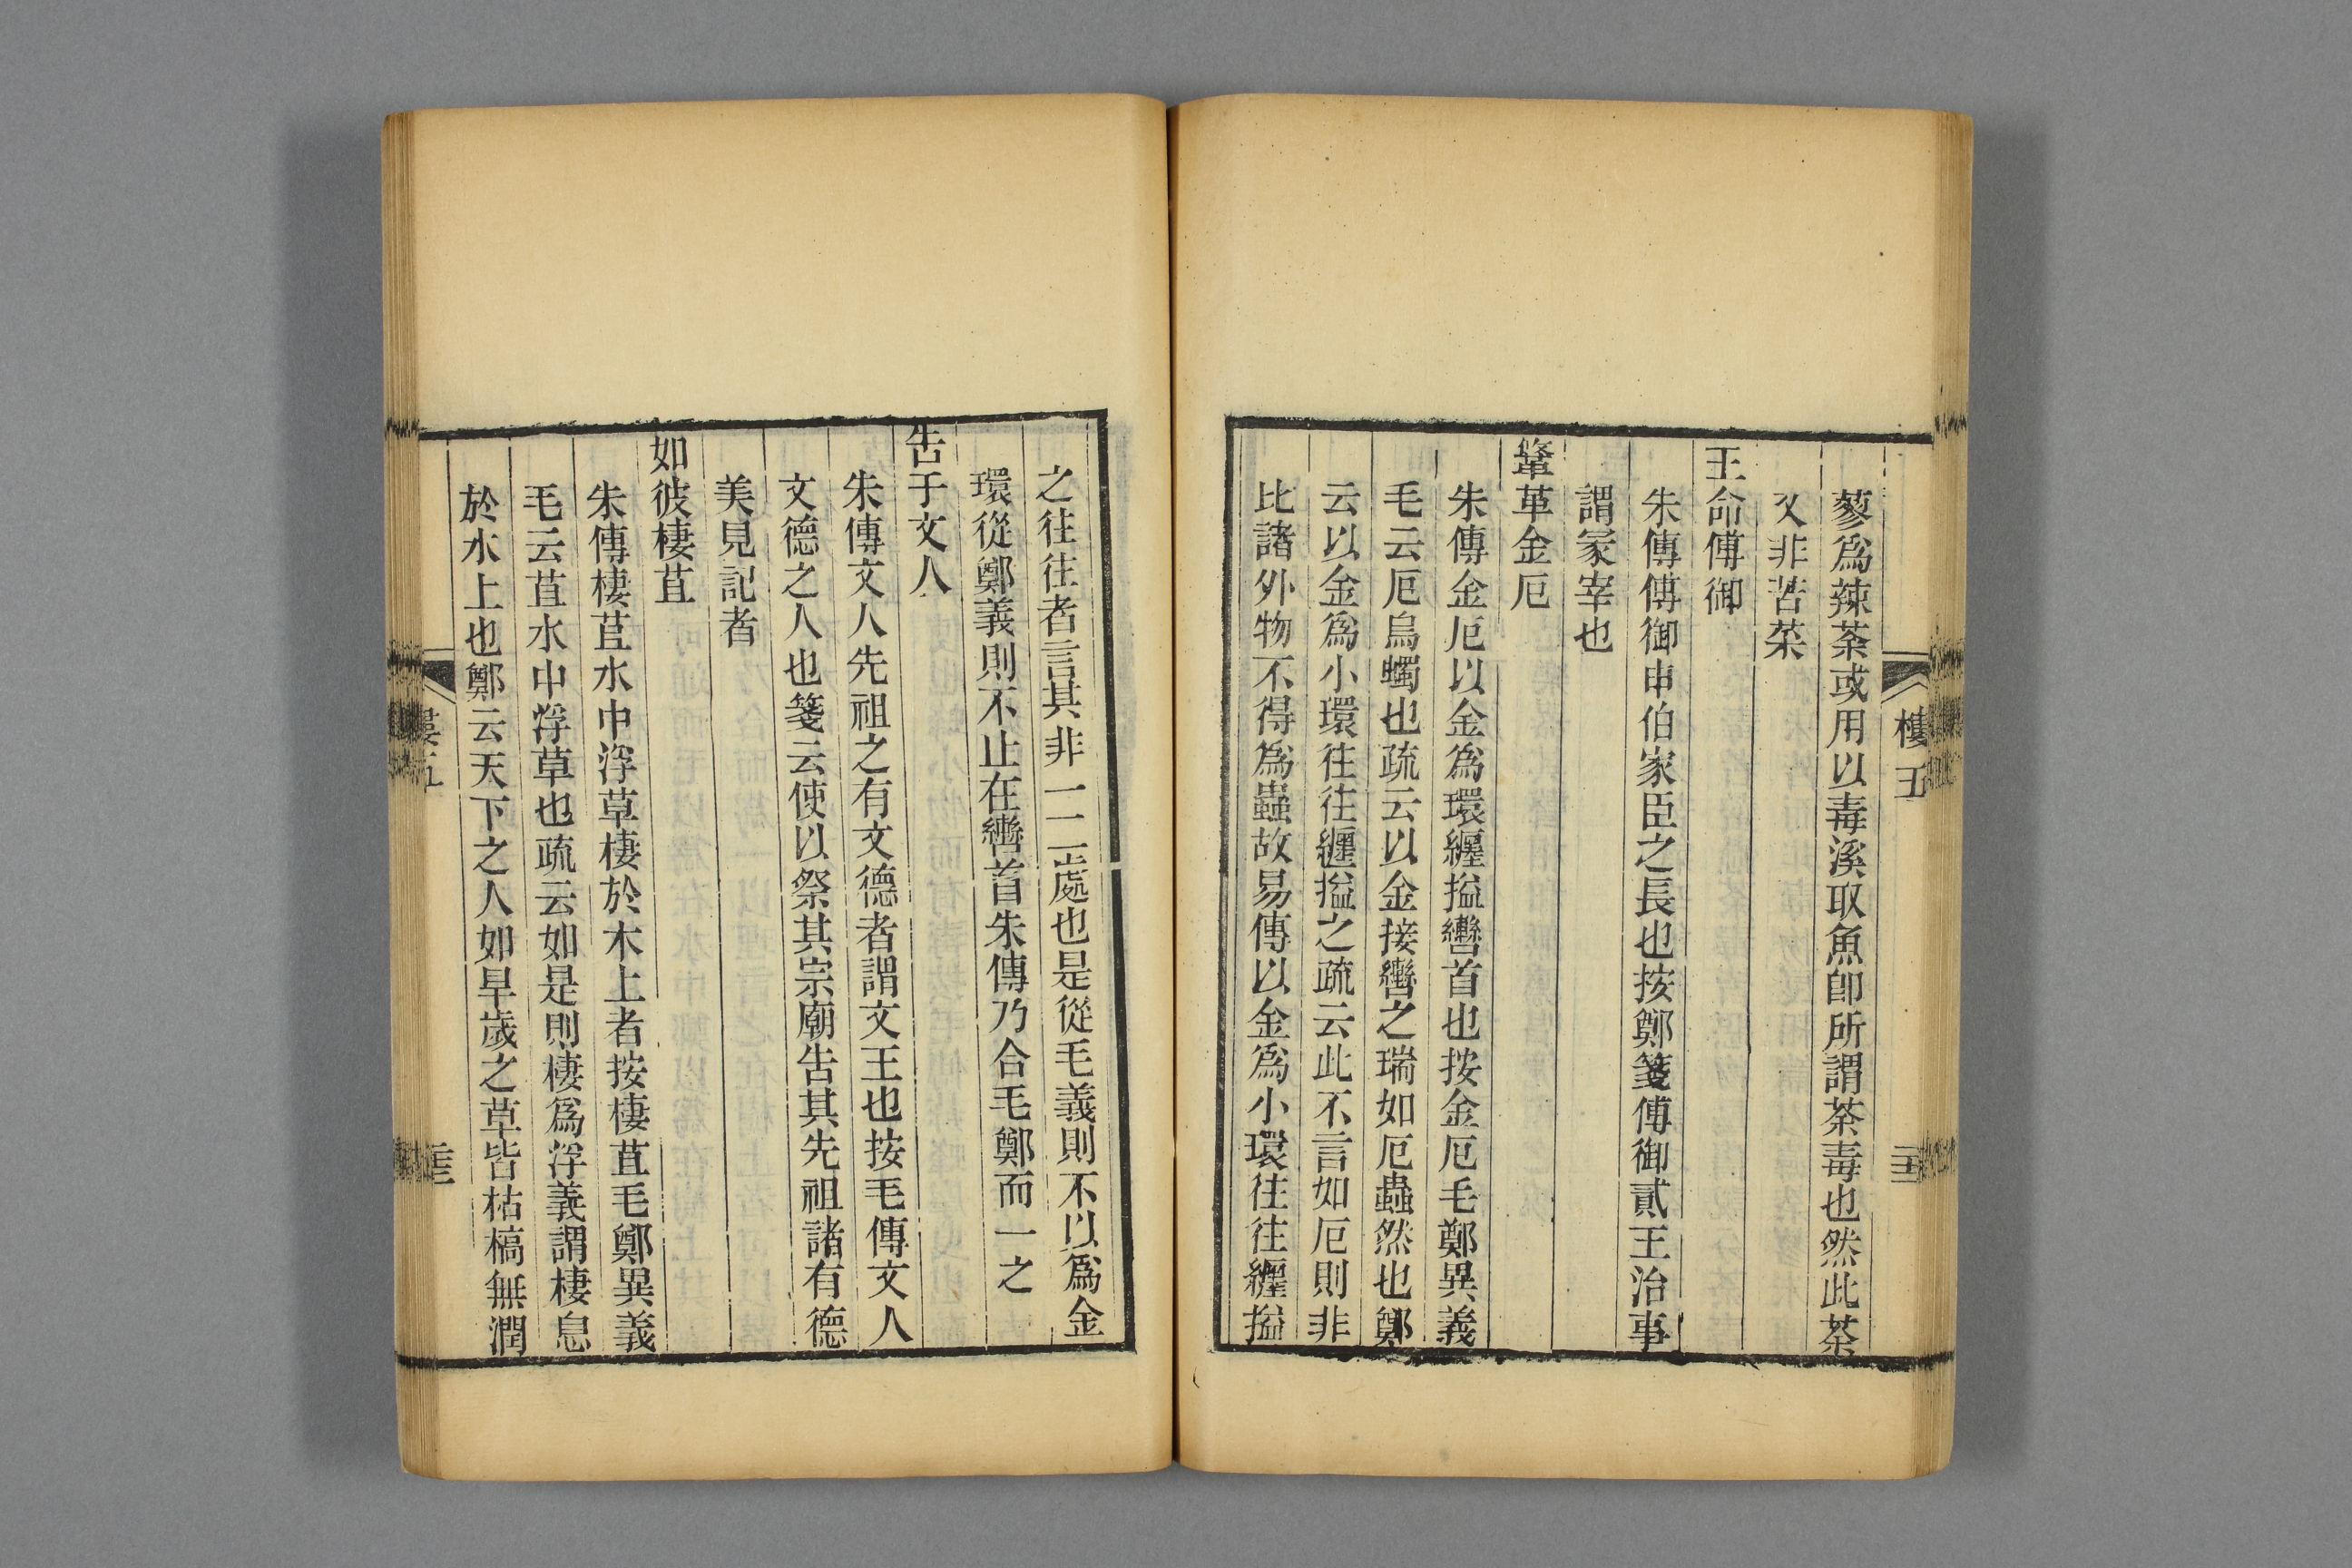 蓼爲辣荼或用以毒溪取魚卽所謂荼毒也然此荼
又非苦菜
王命傅御
朱傳傅御申伯家臣之長也按鄭箋傅御貳王治事
謂冡宰也
鞗革金厄
朱傳金厄以金爲環纏搤轡首也按金厄毛鄭異義
毛云厄烏蠋也疏云以金接轡之瑞如厄蟲然也鄭
云以金爲小環往往纏搤之疏云此不言如厄則非
比諸外物不得爲蟲故易傳以金爲小環往往纏搤
樓五
之往往者言其非一二處也是從毛義則不以爲金
環從鄭義則不止在轡首朱傳乃合毛鄭而一之
告于文人
朱傳文人先祖之有文德者謂文王也按毛傳文人
文德之人也箋云使以祭其宗廟告其先祖諸有德
美見記者
如彼棲苴
朱傳棲苴水中浮草棲於木上者按棲苴毛鄭異義
毛云苴水中浮草也疏云如是則棲爲浮義謂棲息
於水上也鄭云天下之人如旱歲之草皆枯槁無潤